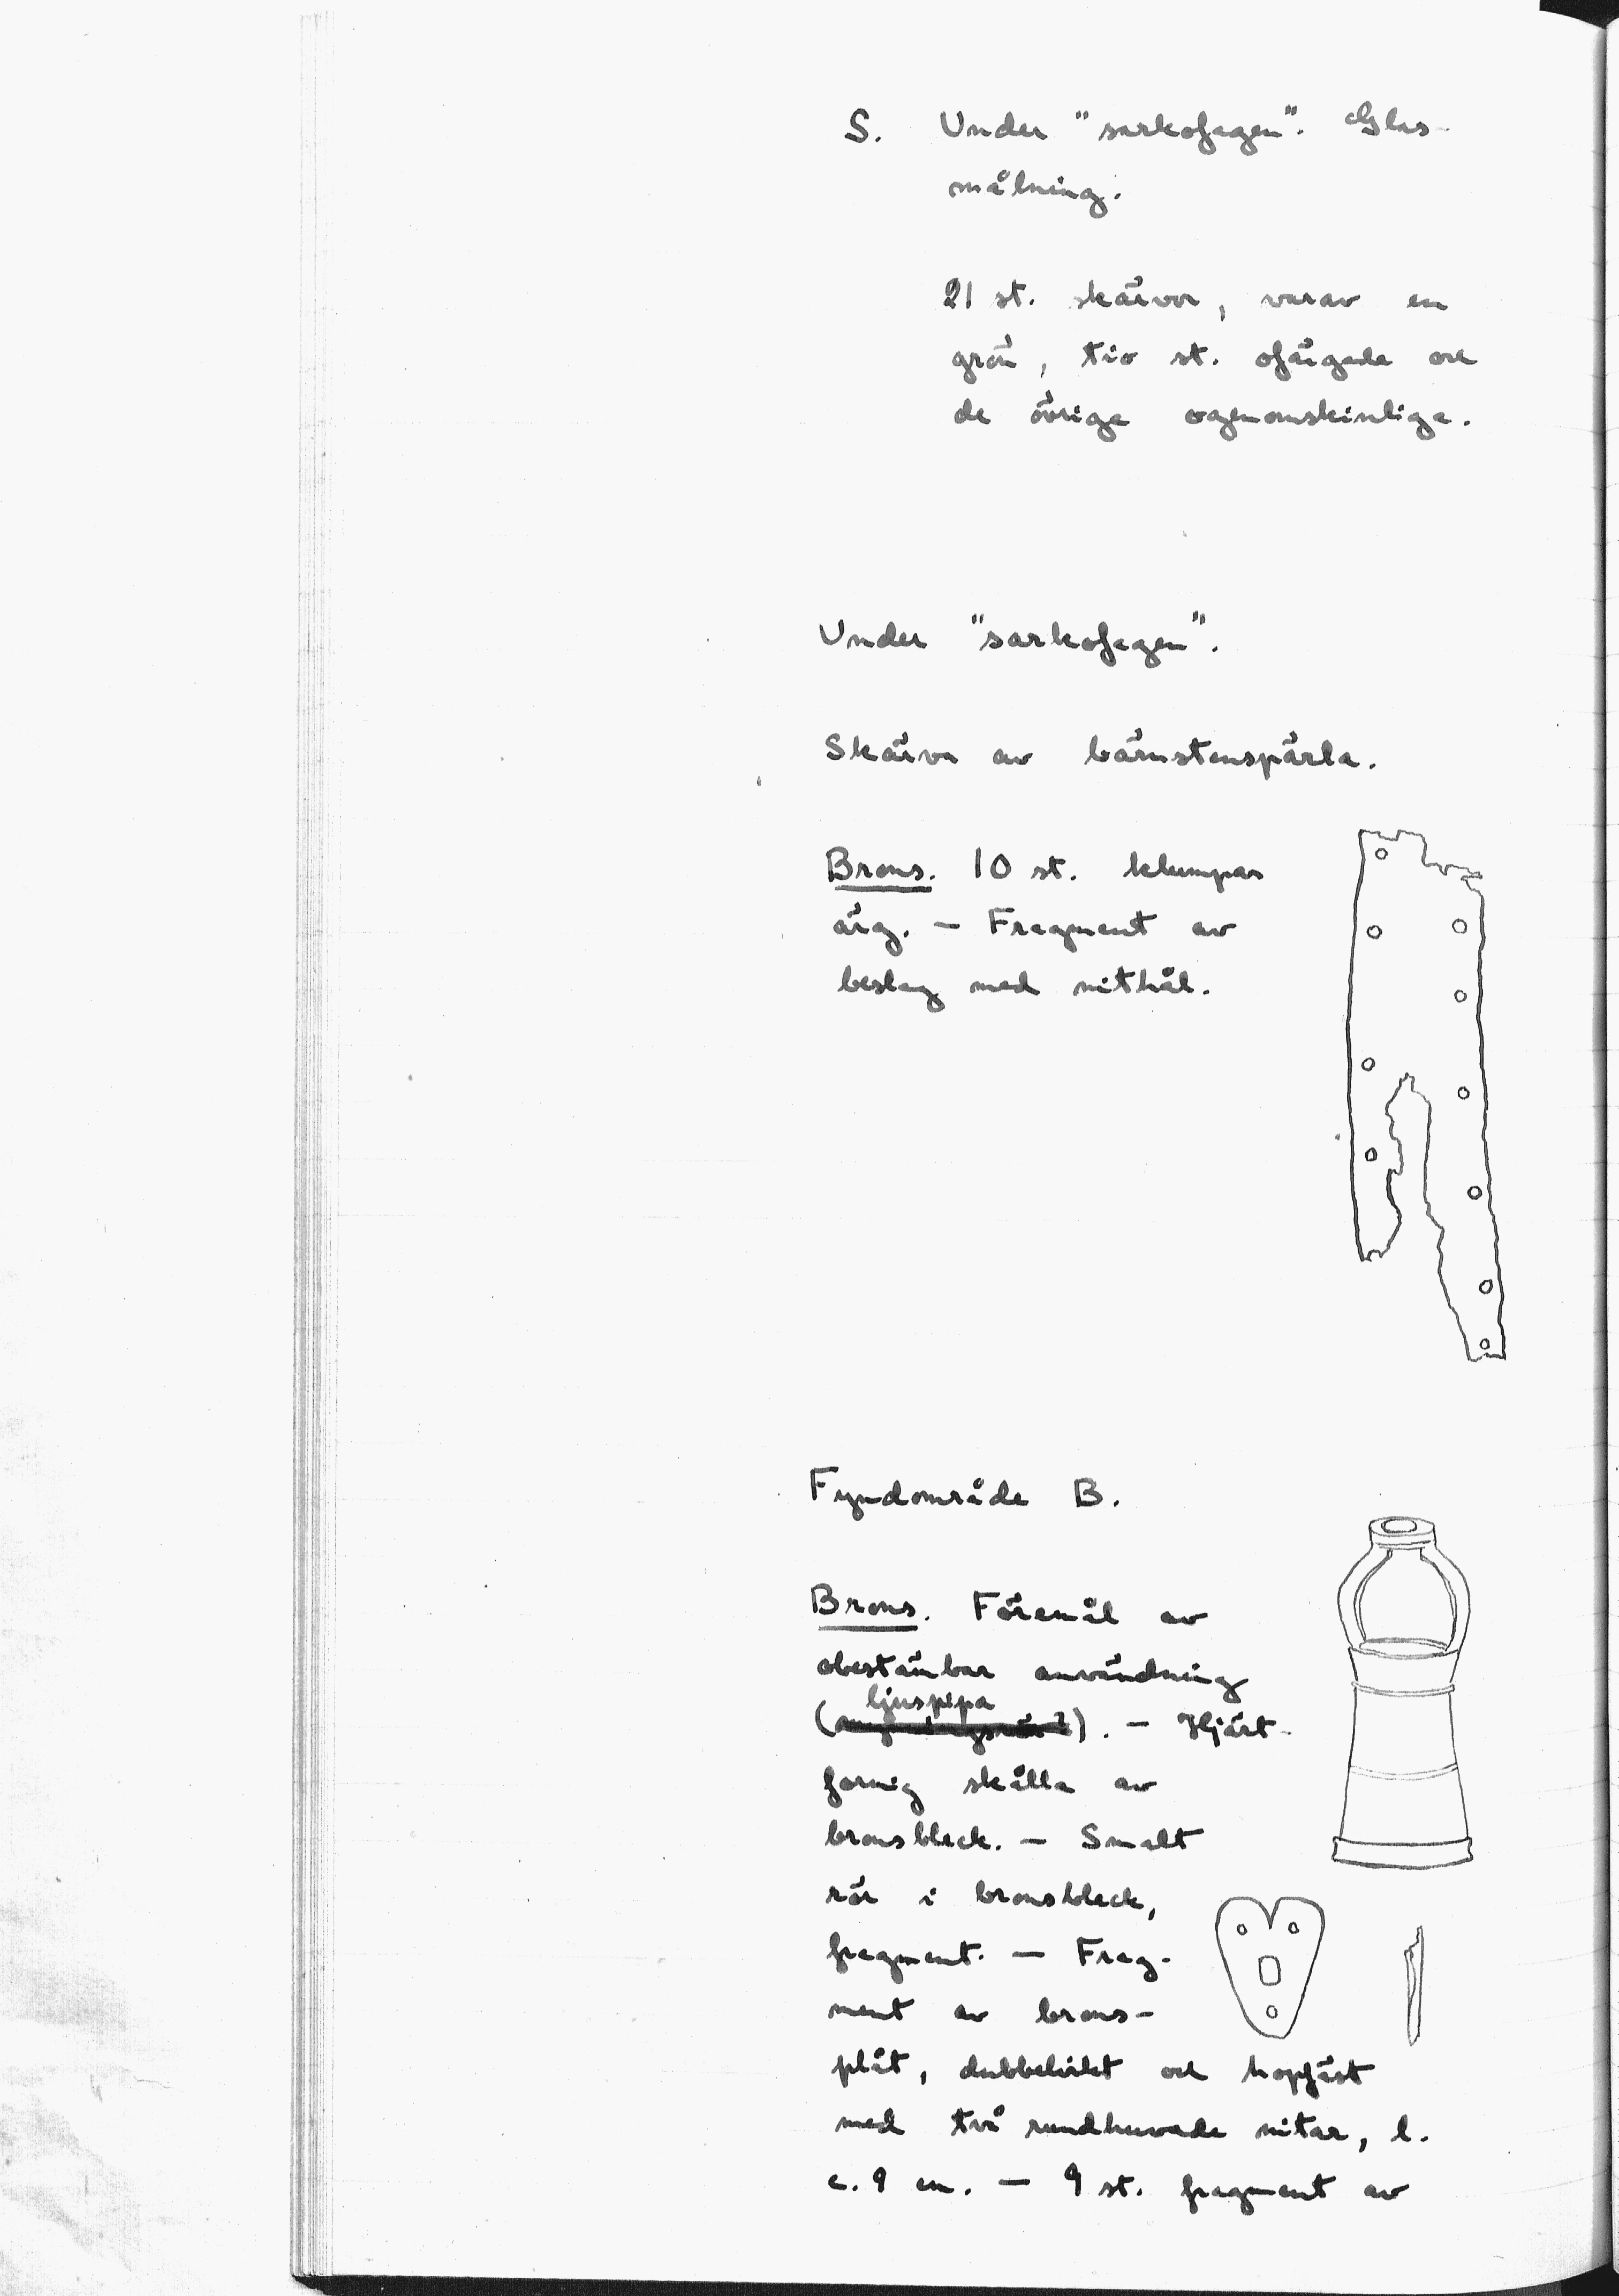 S. Under "sarkofagen". Glas-
målning.
21 st. skärvor, varav en
grön, tio st. ofärgade och
de övriga ogenomskinliga.
Under "sarkofagen".
Skärva av bärnstenspärla.
Brons. 10 st. klumpar
ärg. — Fragment av
beslag med nithål.
Fyndområde B.
Brons. Föremål av
obestämbar användning
ljuspipa
( ). — Hjärt-
formig skålla av
bronsbleck. — Smalt
rör i bronsbleck,
fragment. — Frag-
ment av brons-
plåt, dubbelvikt och hopfäst
med två rundhuvade nitar, l.
c. 9 cm. — 9 st. fragment av